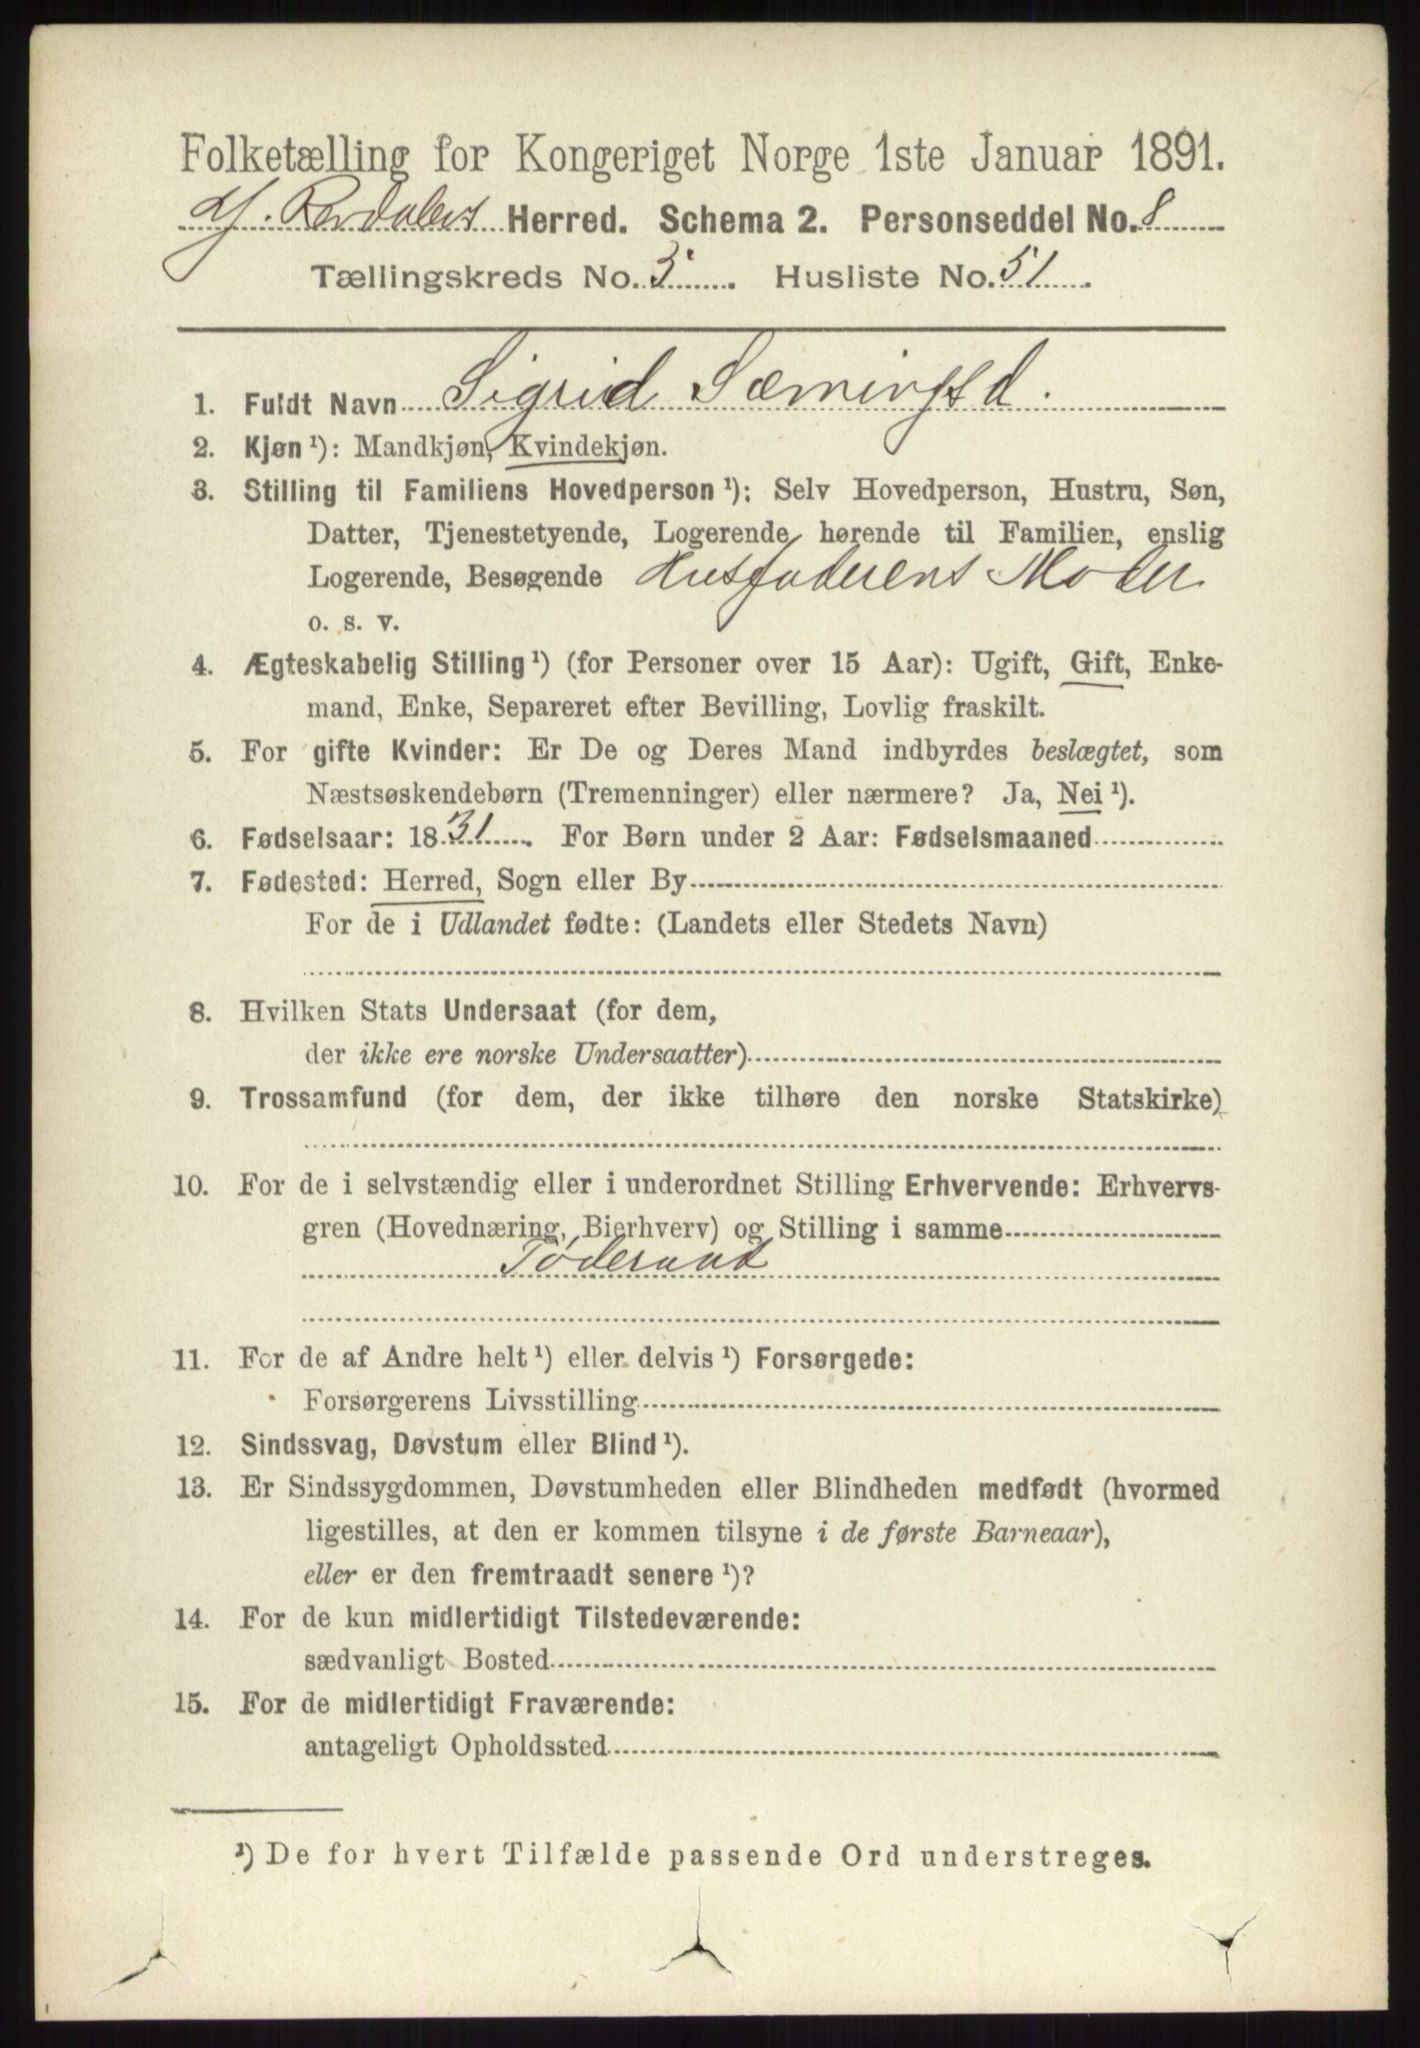 Folketælling for Kongeriget Norge 1ste Januar 1891.
Herred. Schema 2. Personseddel No. 8
Tællingskreds No. 3. Husliste No. 51.
1. Fuldt Navn Sigrid Sæmingsd.
2. Kjøn ¹): Mandkjøn, Kvindekjøn.
3. Stilling til Familiens Hovedperson ¹): Selv Hovedperson, Hustru, Søn,
Datter, Tjenestetyende, Logerende hørende til Familien, enslig
Logerende, Besøgende Husfaderens Moder
o. s. v.
4. Ægteskabelig Stilling ¹) (for Personer over 15 Aar): Ugift, Gift, Enke-
mand, Enke, Separeret efter Bevilling, Lovlig fraskilt.
5. For gifte Kvinder: Er De og Deres Mand indbyrdes beslægtet, som
Næstsøskendebørn (Tremenninger) eller nærmere? Ja, Nei ¹).
6. Fødselsaar: 1831. For Børn under 2 Aar: Fødselsmaaned
7. Fødested: Herred, Sogn eller By
For de i Udlandet fødte: (Landets eller Stedets Navn)
8. Hvilken Stats Undersaat (for dem,
der ikke ere norske Undersaatter)
9. Trossamfund (for dem, der ikke tilhøre den norske Statskirke)
10. For de i selvstændig eller i underordnet Stilling Erhvervende: Erhvervs-
gren (Hovednæring, Bierhverv) og Stilling i samme
Føderaad
11. For de af Andre helt ¹) eller delvis ¹) Forsørgede:
Forsørgerens Livsstilling
12. Sindssvag, Døvstum eller Blind ¹).
13. Er Sindssygdommen, Døvstumheden eller Blindheden medfødt (hvormed
ligestilles, at den er kommen tilsyne i de første Barneaar),
eller er den fremtraadt senere ¹)?
14. For de kun midlertidigt Tilstedeværende:
sædvanligt Bosted
15. For de midlertidigt Fraværende:
antageligt Opholdssted
¹) De for hvert Tilfælde passende Ord understreges.